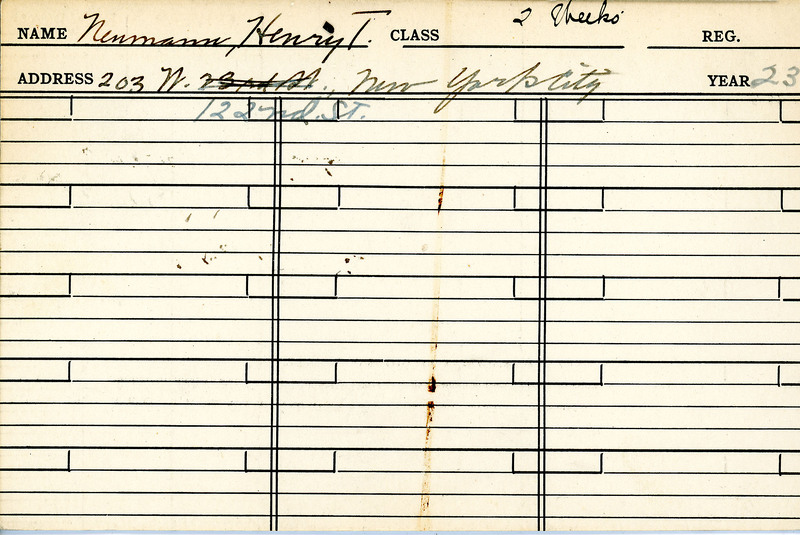 NAME Neumann, Henry T. CLASS 2 Weeks REG.
ADDRESS 203 W. 23rd St., New York City YEAR 23
122nd. St.